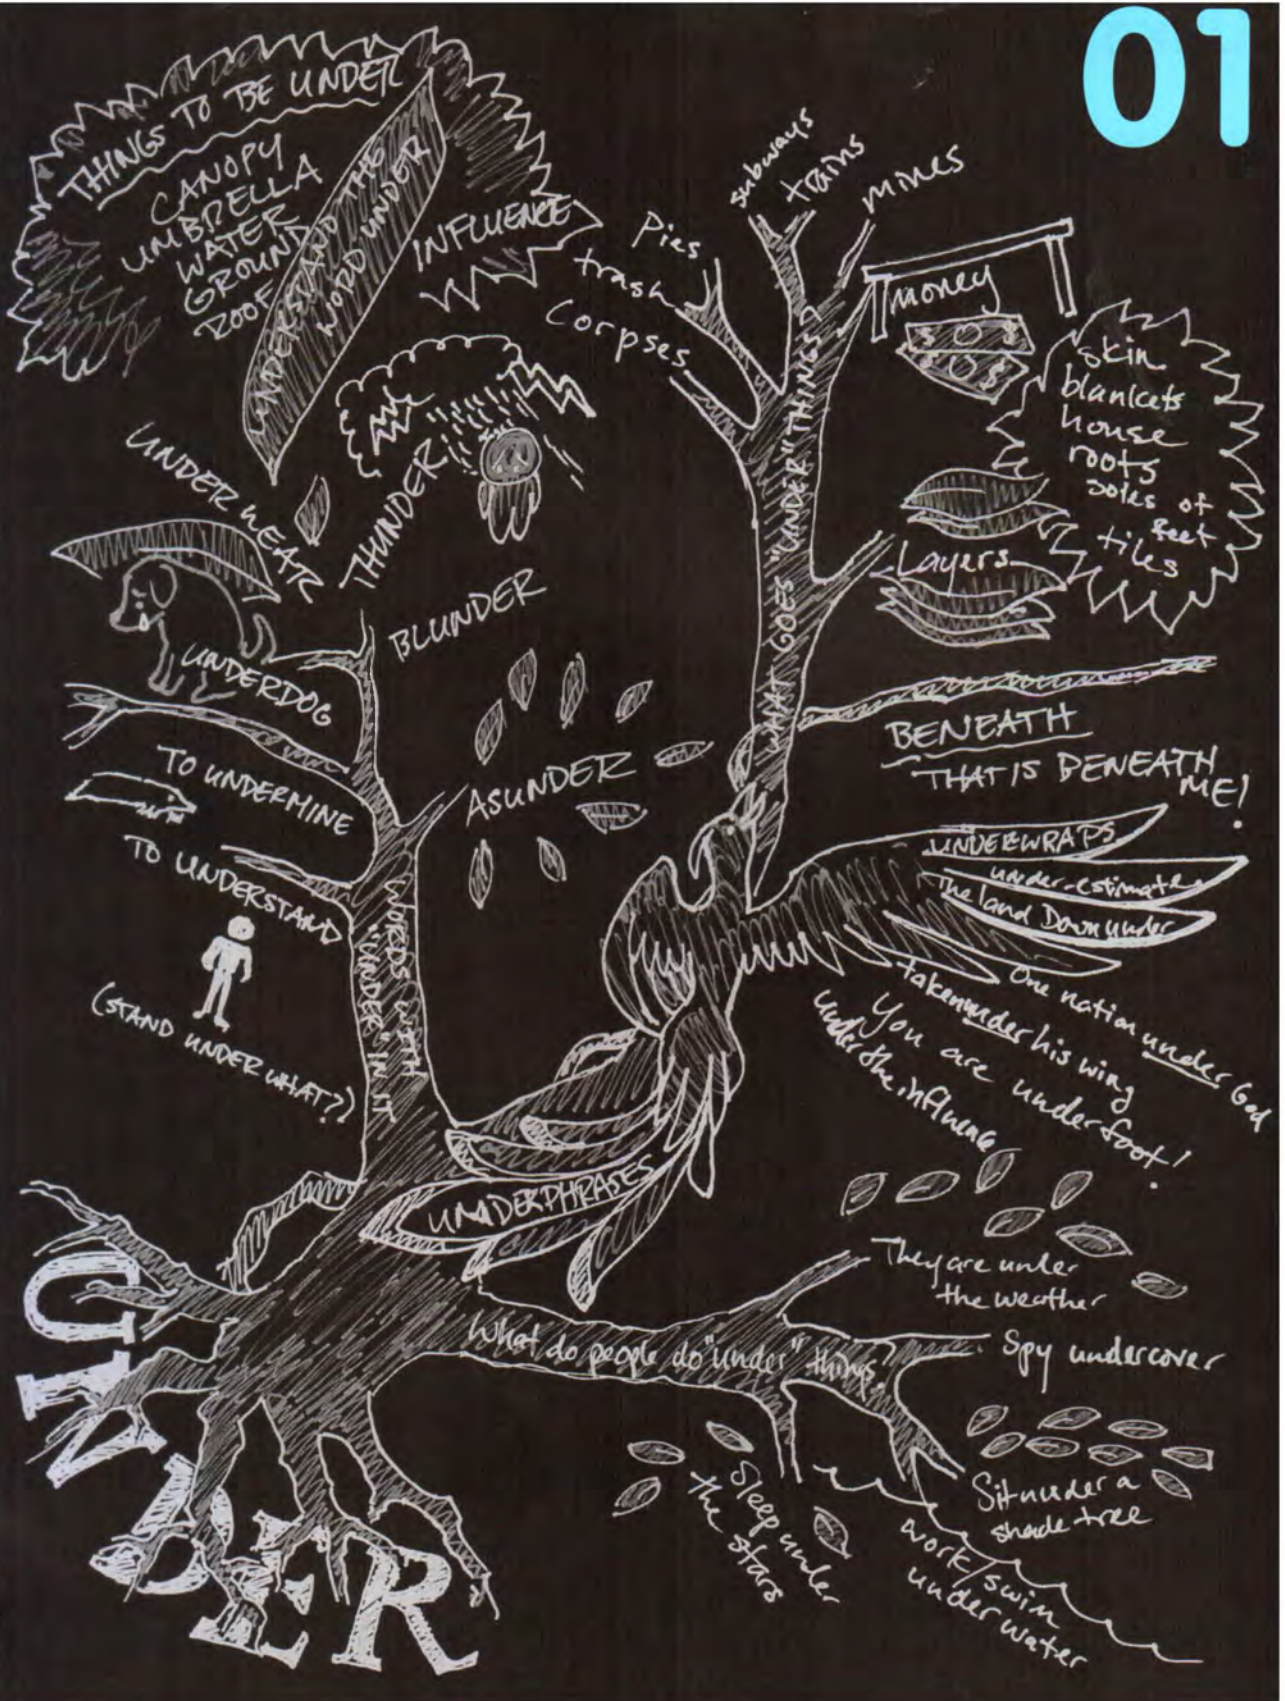 01
THINGS TO BE UNDER
CANOPY
UMBRELLA
WATER
GROUND
ROOF
UNDERSTAND THE
WORD UNDER
INFLUENCE
UNDERWEAR
THUNDER
BLUNDER
UNDERDOG
ASUNDER
TO UNDERMINE
TO UNDERSTAND
(STAND UNDER WHAT?)
WORDS WITH
"UNDER" IN IT
Pies
trash
Corpses
subways
trains
mines
money
WHAT GOES "UNDER" THINGS?
skin
blankets
house
roots
soles of
feet
tiles
Layers
BENEATH
THAT IS BENEATH
ME!
UNDERWRAPS
under-estimate
The land Down under
One nation under God
taken under his wing
You are underfoot!
under the influence
UNDERPHRASES
UNDER
What do people do "under" things?
They are under
the weather
Spy undercover
Sit under a
shade tree
work/swim
under water
Sleep under
the stars